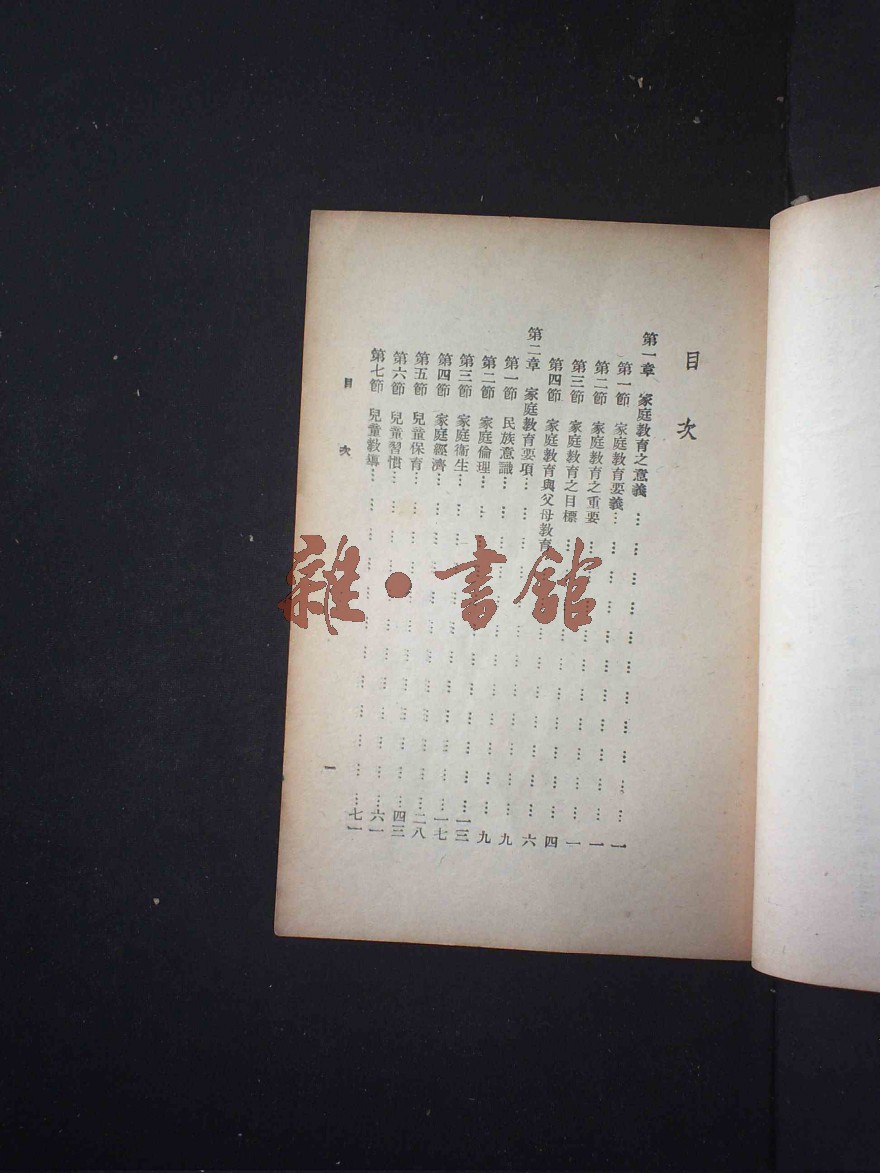 目次
第一章 家庭教育之意義……一
第一節 家庭教育要義……一
第二節 家庭教育之重要……一
第三節 家庭教育之目標……四
第四節 家庭教育與父母教育……六
第二章 家庭教育要項……九
第一節 民族意識……九
第二節 家庭倫理……一三
第三節 家庭衛生……一七
第四節 家庭經濟……二八
第五節 兒童保育……四三
第六節 兒童習慣……六一
第七節 兒童教導……七一
目次
一
雜·書館